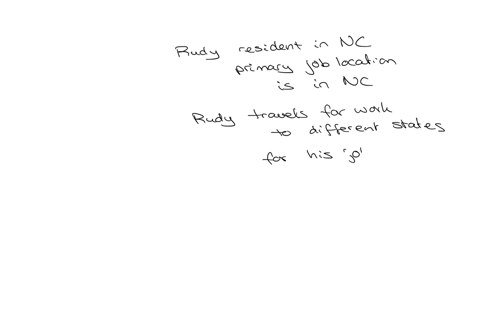 Rudy resident in NC
primary job location
is in NC
Rudy travels for work
to different states
for his 'jo'